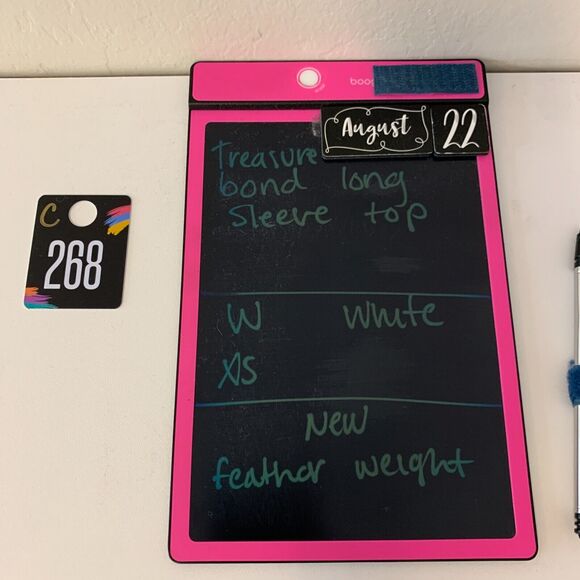 boog
August 22
Treasure
bond long
sleeve top
C
268
W White
XS
New
feather weight